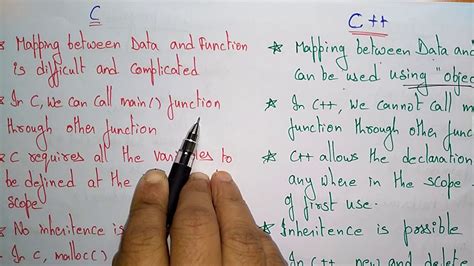 C
* Mapping between Data and Function
is difficult and complicated
* In C, we can call main() function
through other function
* C requires all the variables to
be defined at the
scope
* No inheritence is
* In C, malloc()
C++
* Mapping between Data and
can be used using "objec
* In C++, we cannot call m
function through other funct
* C++ allows the declaration
any where in the scope
of first use.
* Inheritence is possible
* In C++, new and delete